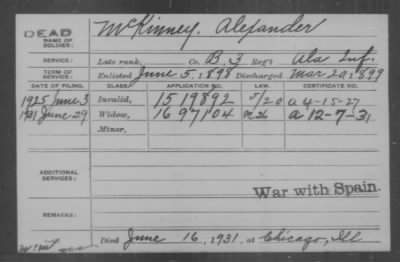 DEAD
NAME OF SOLDIER:
McKinney, Alexander
SERVICE:
Late rank, Co. B, 3 Reg't Ala Inf.
TERM OF SERVICE:
Enlisted June 5, 1898 Discharged Mar 20, 1899
DATE OF FILING. CLASS. APPLICATION NO. LAW. CERTIFICATE NO.
1925 June 3 Invalid, 1519892 5/20 a 4-15-27
1931 June 29 Widow, 1697104 a 12-7-31
Minor,
ADDITIONAL SERVICES:
War with Spain.
REMARKS:
Died June 16, 1931, at Chicago, Ill